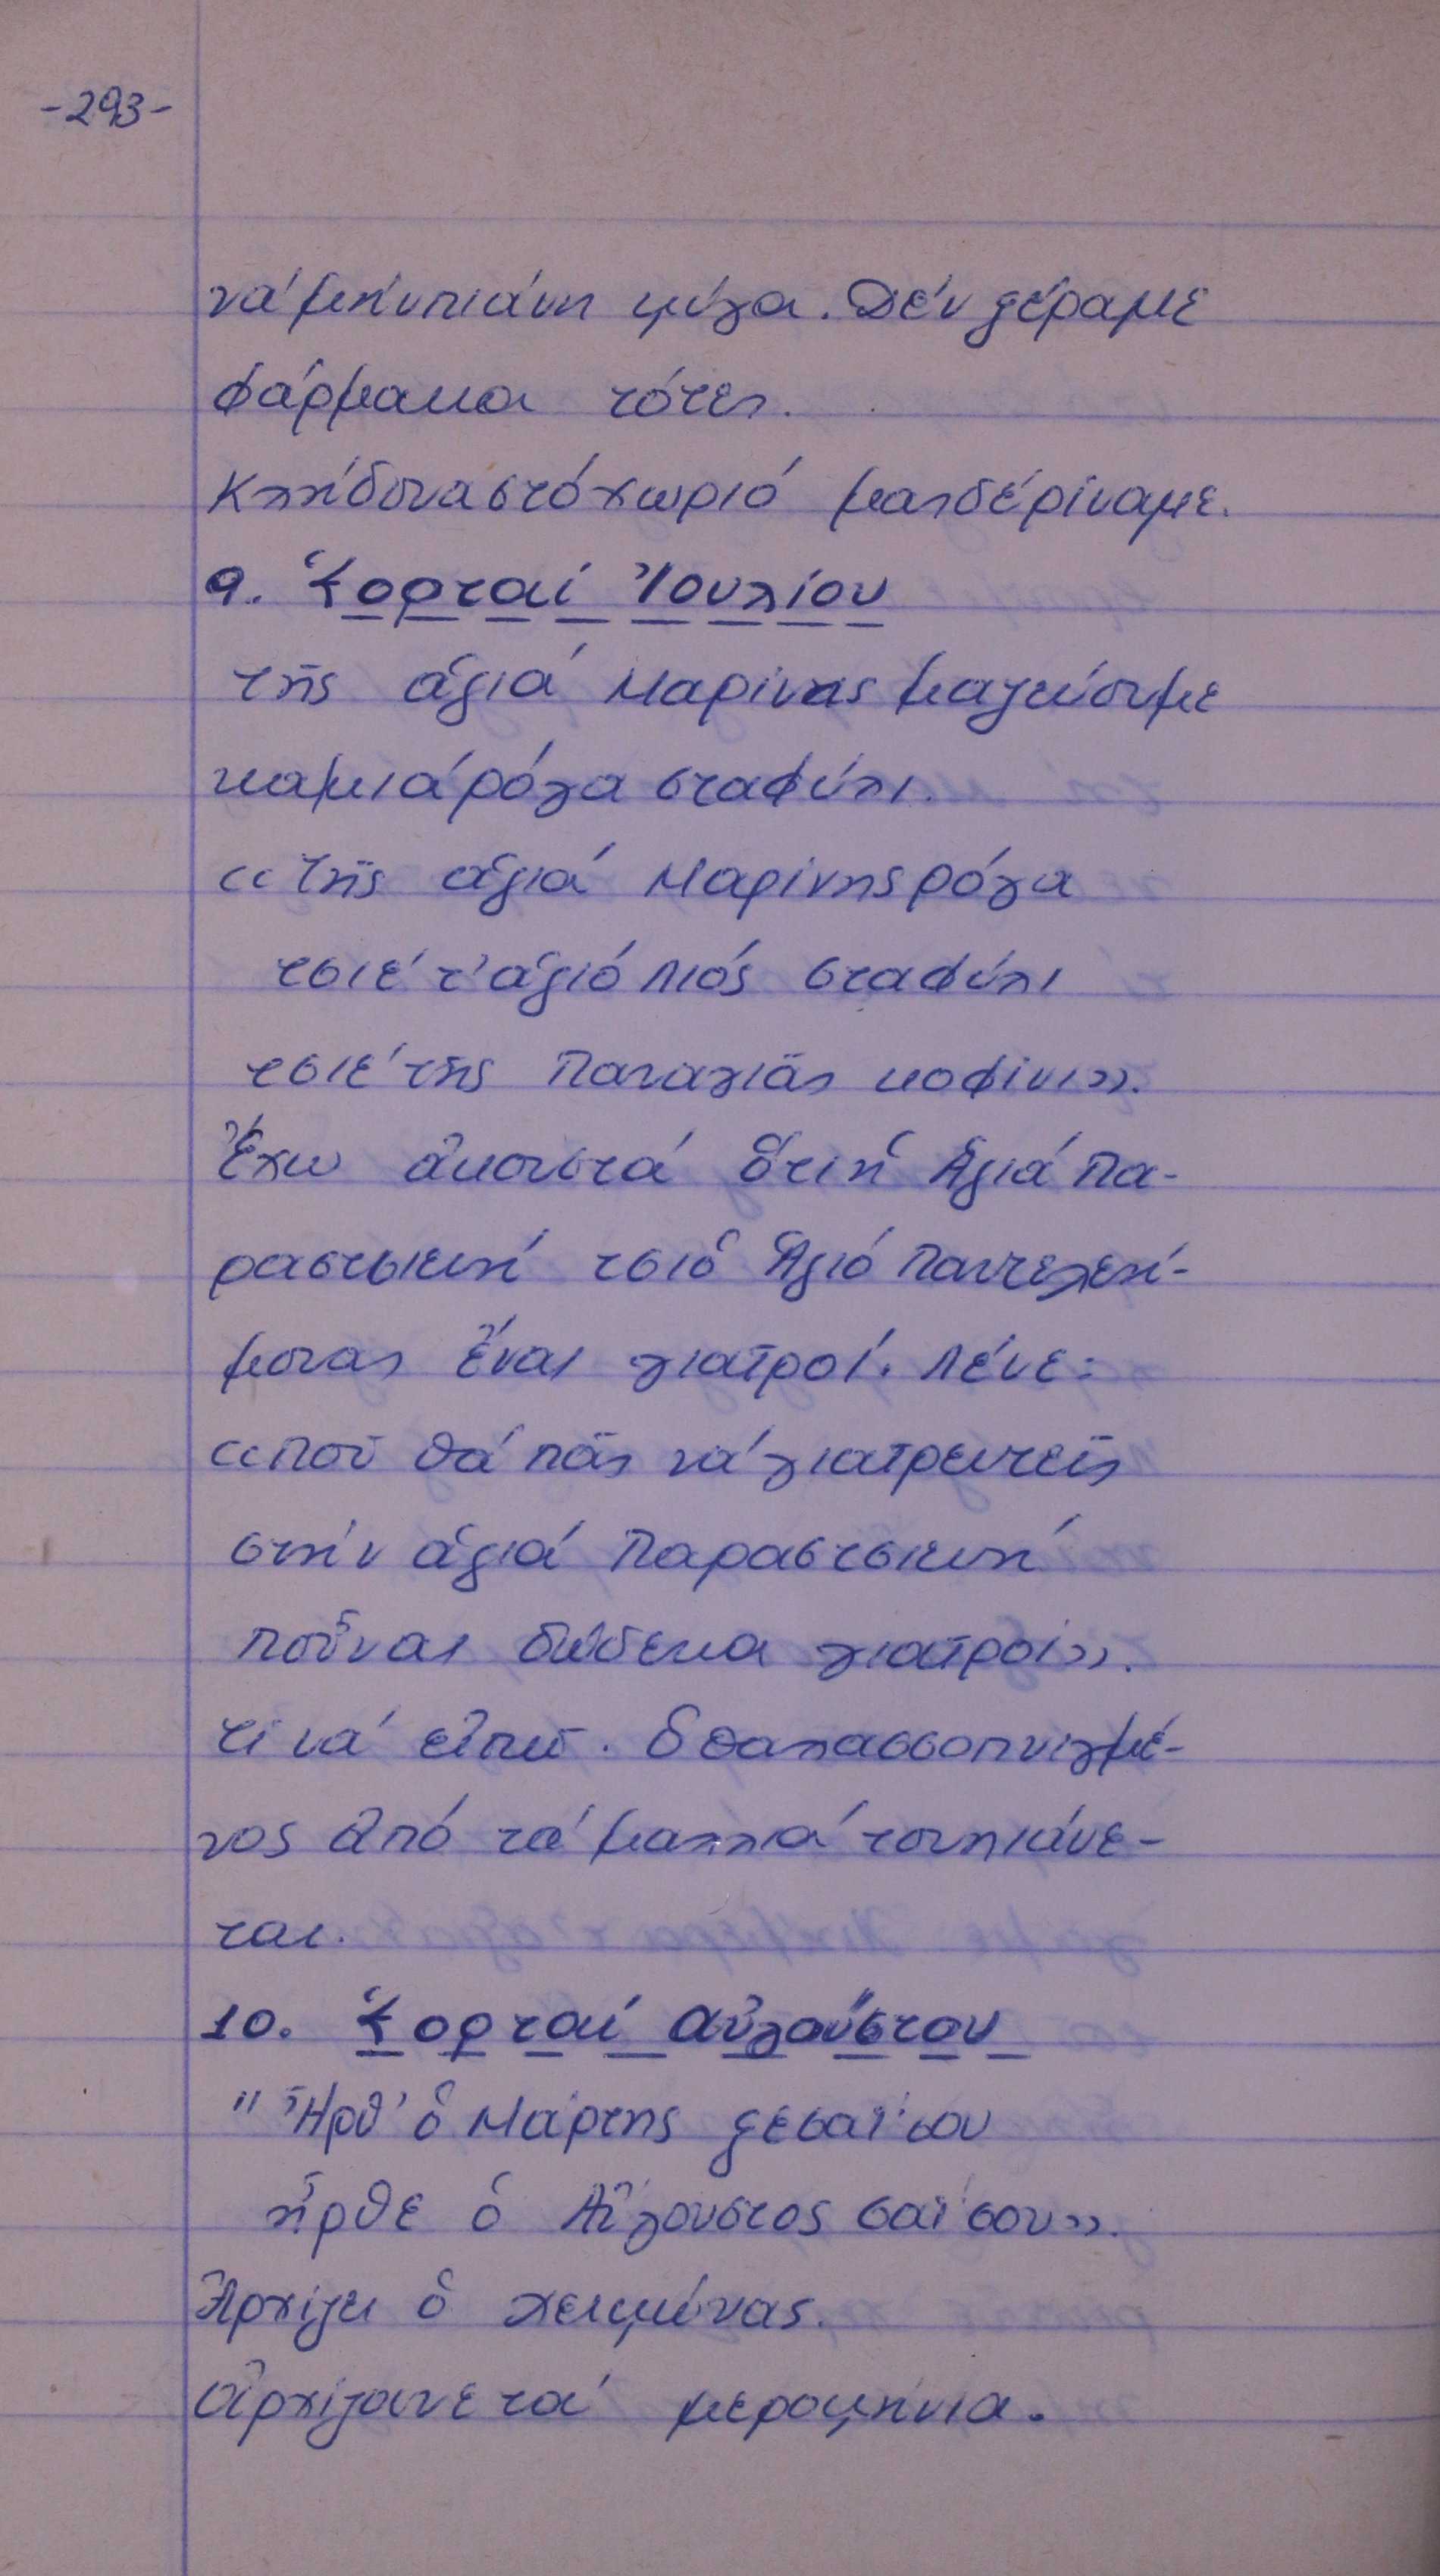 -293-
νά μήν πιάνη ψύλα. Δέν ξέραμε
φάρμακα τότες.
Κλήδονα στό χωριό μας δέ ρίναμε.
9. Ἑορταί Ἰουλίου
τῆς ἁγιά Μαρίνας μαζεύουμε
καμιά ρόγα σταφύλι.
«Τῆς ἁγιά Μαρίνης ρόγα
τσιέ τ' ἁγιό Λιός σταφύλι
τσιέ τῆς Παναγιᾶς κοφίνι».
Ἔχω ἀκουστά ὅτι ἡ Ἁγιά Πα-
ραστσιευή τσιό Ἁγιό Παντελεή-
μονας ἔναι γιατροί. Λένε:
«Ποῦ θά πᾶς νά γιατρευτεῖς
στήν ἁγιά Παραστσιευή
ποὖναι δώδεκα γιατροί».
Τί νά εἰπῶ. Ὁ θαλασσοπνιγμέ-
νος ἀπό τά μαλλιά του πιάνε-
ται.
10. Ἑορταί Αὐγούστου
"Ἦρθ' ὁ Μάρτης ξεσαΐσου
ἦρθε ὁ Αὔγουστος σαΐσου».
Ἀρχίζει ὁ χειμώνας.
ἀρχίζουνε τά μερομήνια.